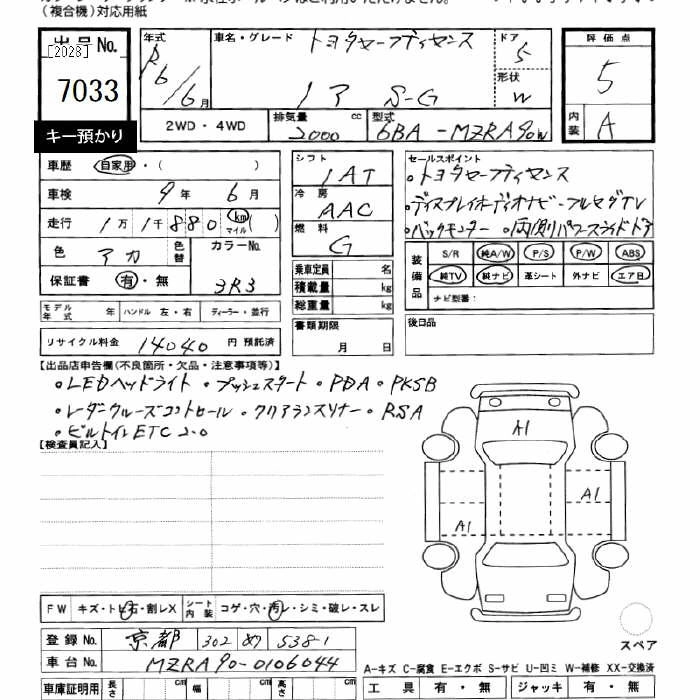 （複合機）対応用紙
出品 No.
[2028]
7033
キー預かり
年式 R6/6月
車名・グレード トヨタセーフティセンス
ノア S-G
ドア 5
形状 W
2WD・4WD
排気量 2000 cc
型式 6BA-MZRA90W
評価点 5
内装 A
車歴 自家用・( )
車検 9年 6月
走行 1万1千880 km マイル ( )
色 アカ
色替
カラーNo. 3R3
保証書 有・無
モデル年式 年 ハンドル 左・右 ディーラー・並行
リサイクル料金 14040 円 預託済
シフト IAT
冷房 AAC
燃料 G
乗車定員 名
積載量 kg
総重量 kg
書類期限
月 日
セールスポイント
・トヨタセーフティセンス
・ディスプレイオーディオナビ-フルセグTV
・バックモニター ・両側パワースライドドア
装備品
S/R 純A/W P/S P/W ABS
純TV 純ナビ 革シート 外ナビ エア日
ナビ型番：
後日品
【出品店申告欄(不良箇所・欠品・注意事項等)】
・LEDヘッドライト ・プッシュスタート ・PDA ・PKSB
・レーダークルーズコントロール ・クリアランスソナー ・RSA
・ビルトインETC 2.0
【検査員記入】
A1
A1
A1
スペア
FW キズ・トビ石・割レX シート内装 コゲ・穴・汚レ・シミ・破レ・スレ
登録 No. 京都 302 め 5381
車台 No. MZRA90-0106044
車庫証明用 長さ cm 幅 cm 高さ cm
A-キズ C-腐食 E-エクボ S-サビ U-凹ミ W-補修 XX-交換済
工具 有・無 ジャッキ 有・無